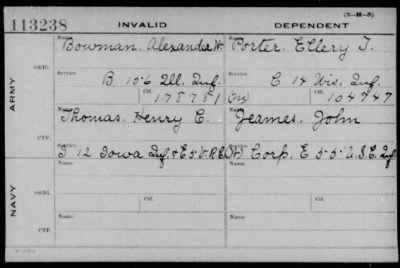 (3-H-3)
113238 INVALID DEPENDENT
Name Name
Bowman. Alexander W. Porter. Ellery T.
ORIG. Service Service
B 106 Ill. Inf. C 14 Wis. Inf.
Ctf. 178781 Ctf. 104747
ARMY
Name Name
Thomas. Henry C. Jeames. John
CTF. Service Service
I 12 Iowa Inf. & E 5 V.R.C. Corp. E 55 U.S.C. Inf.
Name Name
ORIG. Service Service
Ctf. Ctf.
NAVY
Name Name
CTF. Service Service